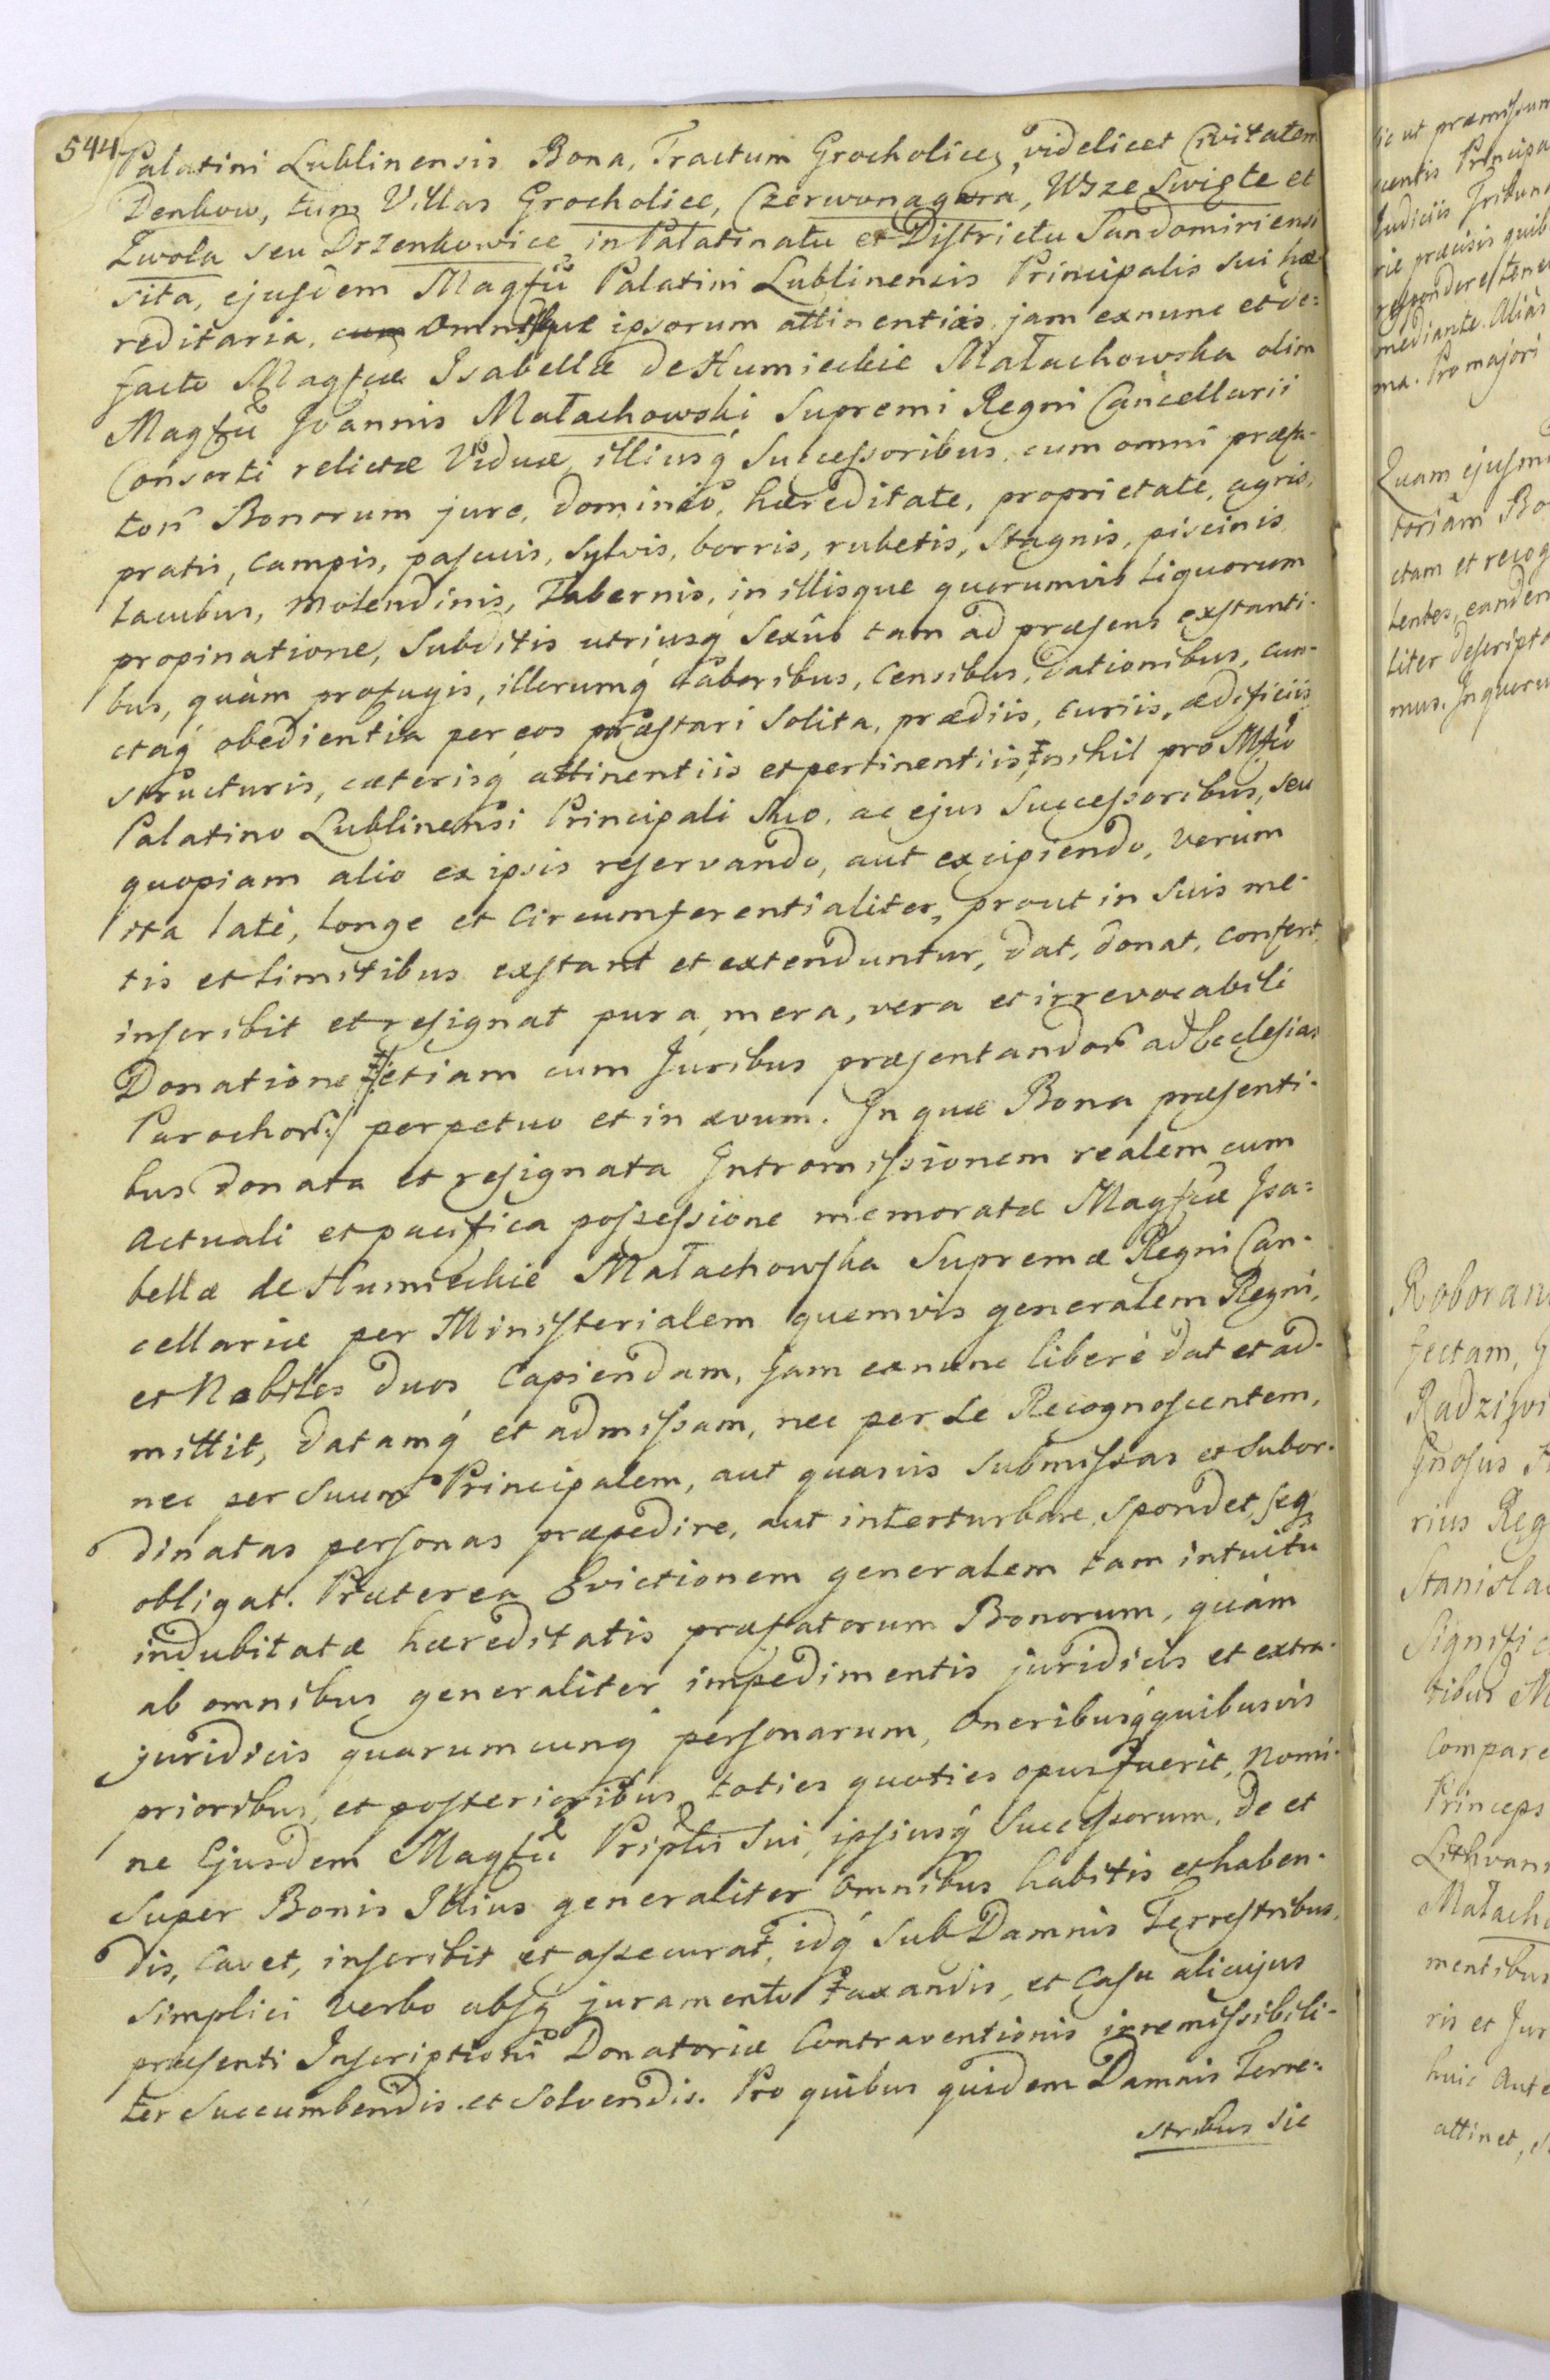 544
Palatini Lublinensis Bona, Tractum Grocholice, videlicet Civitatem
Denkow, tum Villas Grocholice, Czerwonagora, Wsze Swięte et
Zwola seu Drzenkowice in Palatinatu et Districtu Sandomiriensi
sita, ejusdem Magfci Palatini Lublinensis Principalis sui hæ-
reditaria, cum Omnibque ipsorum attinentiis jam exnunc et de=
facto Magfcæ Isabellæ de Humieckie Małachowska olim
Magfci Joannis Małachowski Supremi Regni Cancellarii
Consorti relictæ Viduæ, illiusq́ Successoribus, cum omni præfa-
tor Bonorum jure, dominio, hæreditate, proprietate, agris,
pratis, campis, pascuis, Sylvis, borris, rubetis, Stagnis, piscinis
lacubus, molendinis, Tabernis, in illisque quorumvis Liquorum
propinatione, Subditis utriusq́ Sexûs tam ad præsens exstanti-
bus, quàm profugis, illorumq́ laboribus, Censibus, dationibus, cun-
ctaq́ obedientia per eos præstari solita, prædiis, curiis, ædificiis
structuris, cæterisq́ attinentiis et pertinentiis, nihil pro Mfco
Palatino Lublinensi Principali suo, ac ejus Successoribus, seu
quopiam alio ex ipsis reservando, aut excipiendo, verùm
ita latè, longe et Circumferentialiter, prout in suis me-
tis et limitibus exstant et extenduntur, dat, donat, confert,
inscribit et resignat pura, mera, vera et irrevocabili
Donatione /:etiam cum Juribus præsentandor ad Ecclesias
Parochor:/ perpetuo et in ævum. In quæ Bona præsenti-
bus donata et resignata Intromissionem realem cum
actuali et pacifica possessione memoratæ Magfcæ Isa=
bellæ de Humieckie Małachowska Supremæ Regni Can-
cellariæ per Ministerialem quemvis generalem Regni,
et Nobiles duos Capiendam, jam exnunc liberè dat et ad-
mittit, datamq́ et admissam, nec per se Recognoscentem,
nec per suum Principalem, aut quasvis submissas et subor-
dinatas personas præpedire, aut interturbare, spondet, seq
obligat. Præterea Evictionem generalem tam intuitu
indubitatæ hæreditatis præfatorum Bonorum, quàm
ab omnibus generaliter impedimentis juridicis et extra-
juridicis quarumcunq́ personarum, Oneribusq́ quibusvis
prioribus, et posterioribus, toties quoties opus fuerit, nomi-
ne Ejusdem Magfci Priplis sui, ipsiusq́ Successorum, de et
super Bonis Illius generaliter Omnibus habitis et haben-
dis, cavet, inscribit et assecurat, idq́ sub Damnis Terrestribus,
simplici verbo absq́ juramento taxandis, et Casu alicujus
præsenti Inscriptioni Donatoriæ Contraventionis irremissibili-
ter succumbendis et solvendis. Pro quibus quidem Damnis Terre=
stribus sic
ic ut præmissum
Principa
Judiciis Tribuna
præcisis quib
respondere tene
mediante. Aliàs
ma. Pro majori
Quam ejusm
toriam Bo
ctam et recog
lentes, eandem
liter descripta
mus. In quoru
Roboran
fectam,
Radzivi
rius Reg
Stanisla
Signific
Compare
Princeps
Lithvani
Małacho
mentibus
ris et Jur
huic Aute
attinet,